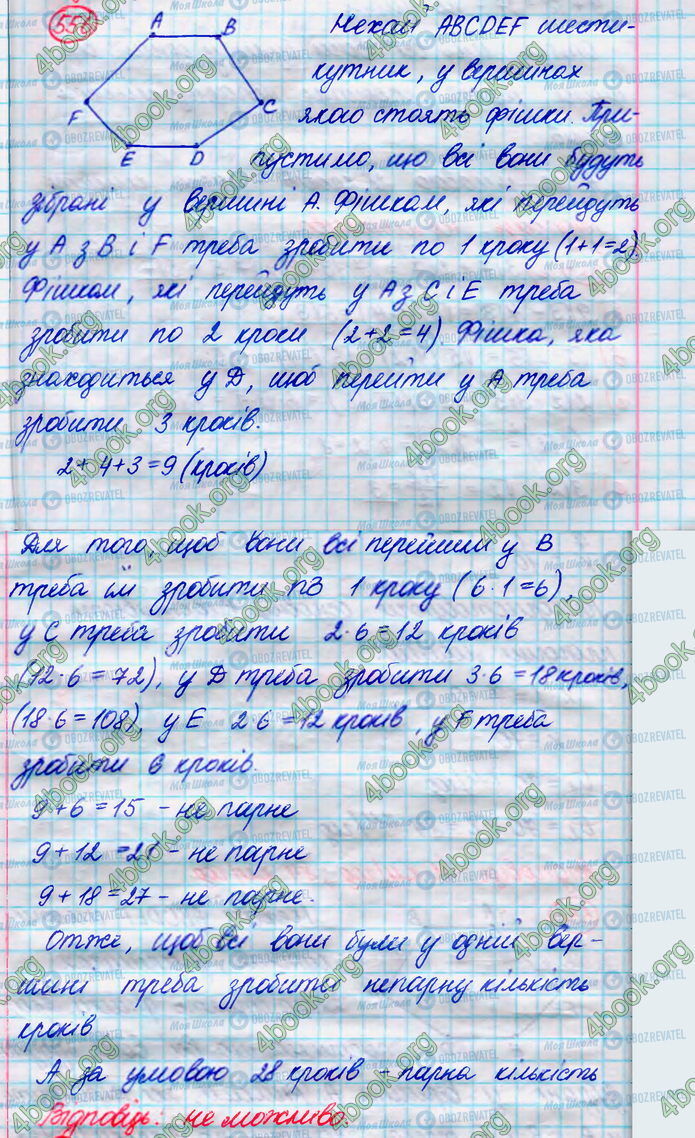 556
A B
C
F
E D
Нехай ABCDEF шести-
кутник, у вершинах
якого стоять фішки. При-
пустимо, що всі вони будуть
зібрані у вершині А. Фішкам, які перейдуть
у А з В і F треба зробити по 1 кроку (1+1=2)
Фішкам, які перейдуть у А з С і Е треба
зробити по 2 кроки (2+2=4) Фішка, яка
знаходиться у D, щоб перейти у А треба
зробити 3 кроків.
2+4+3=9 (кроків)
Для того, щоб вони всі перейшли у В
треба їм зробити по 1 кроку (6·1=6),
у С треба зробити 2·6=12 кроків
(12·6=72), у D треба зробити 3·6=18 кроків,
(18·6=108), у Е 2·6=12 кроків, у F треба
зробити 6 кроків.
9+6=15 - не парне
9+12=21 - не парне
9+18=27 - не парне.
Отже, щоб всі вони були у одній вер-
шині треба зробити непарну кількість
кроків
А за умовою 28 кроків - парна кількість
Відповідь: не можливо.
4book.org
Моя Школа
OBOZREVATEL